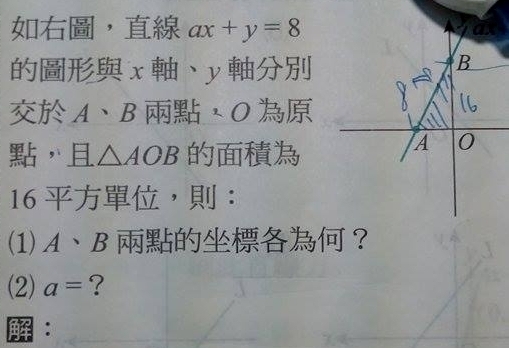 如右圖，直線 ax + y = 8
的圖形與 x 軸、y 軸分別
交於 A、B 兩點，O 為原
點，且△AOB 的面積為
16 平方單位，則：
(1) A、B 兩點的坐標各為何？
(2) a = ?
解：
ax
B
8
16
A
O